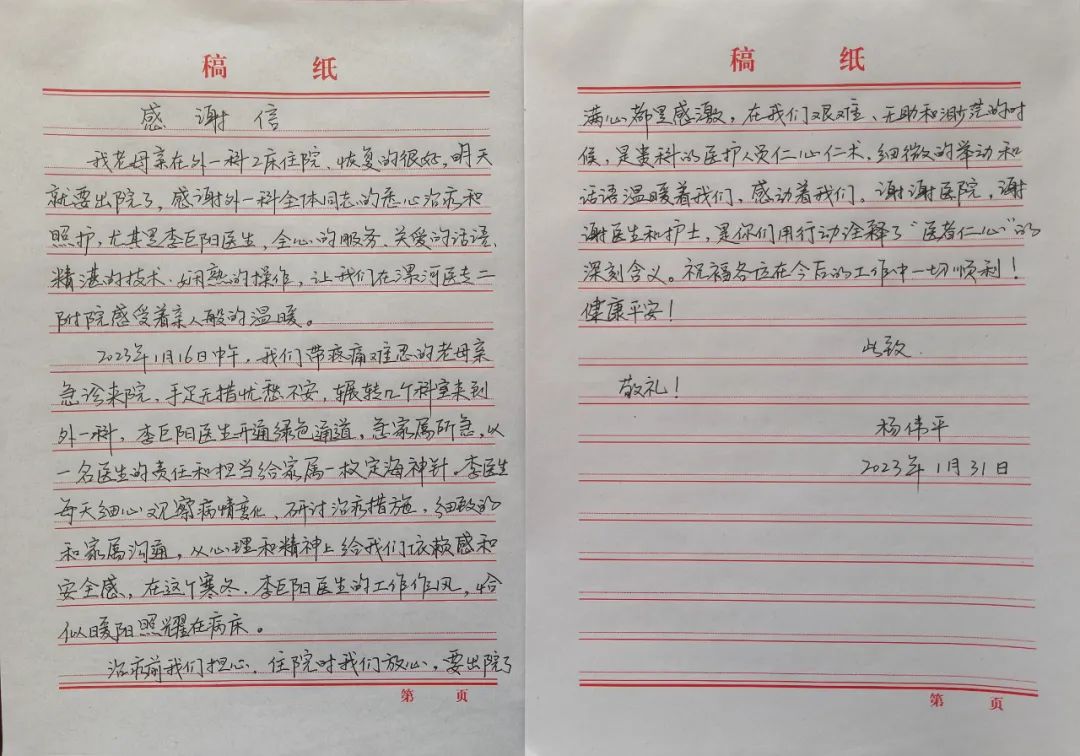 稿 纸
感谢信
我老母亲在外一科2床住院、恢复的很好,明天
就要出院了,感谢外一科全体同志的悉心治疗和
照护,尤其是李巨阳医生,全心的服务、关爱的话语、
精湛的技术、娴熟的操作,让我们在漯河医专二
附院感受着亲人般的温暖。
2023年1月16日中午,我们带疼痛难忍的老母亲
急诊来院、手足无措忧愁不安,辗转几个科室来到
外一科,李巨阳医生开通绿色通道,急家属所急,以
一名医生的责任和担当给家属一枚定海神针。李医生
每天细心观察病情变化、研讨治疗措施,细致的
和家属沟通,从心理和精神上给我们依赖感和
安全感,在这个寒冬,李巨阳医生的工作作风,恰
似暖阳照耀在病床。
治疗前我们担心,住院时我们放心,要出院了
第 页
稿 纸
满心都是感激,在我们艰难、无助和渺茫的时
候,是贵科的医护人员仁心仁术,细微的举动和
话语温暖着我们,感动着我们。谢谢医院,谢
谢医生和护士,是你们用行动诠释了“医者仁心”的
深刻含义。祝福各位在今后的工作中一切顺利!
健康平安!
此致
敬礼!
杨伟平
2023年1月31日
第 页